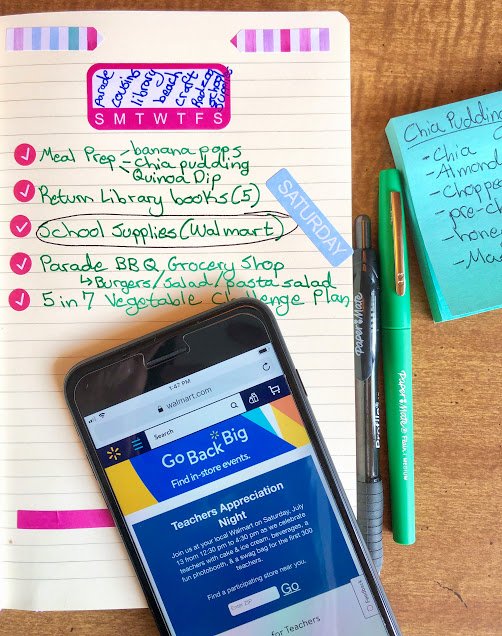 parade
cousins
library
beach
craft
school
supplies
S M T W T F S
Meal Prep - banana pops
- chia pudding
- Quinoa Dip
Return Library books (5)
School Supplies (Walmart)
SATURDAY
Parade BBQ Grocery Shop
↳ Burgers/Salad/pasta salad
5 in 7 Vegetable Challenge Plan
Chia Pudding
- Chia
- Almond
- Choppe
- pre-ch
- hone
- Ma
Paper Mate
Paper Mate Flair
1:47 PM
walmart.com
Search
Go Back Big
Find in-store events.
Teachers Appreciation
Night
Join us at your local Walmart on Saturday, July
13 from 12:30 pm to 4:30 pm as we celebrate
teachers with cake & ice cream, beverages, a
fun photobooth, & a swag bag for the first 300
teachers.
Find a participating store near you.
Enter ZIP
Go
Feedback
for Teachers